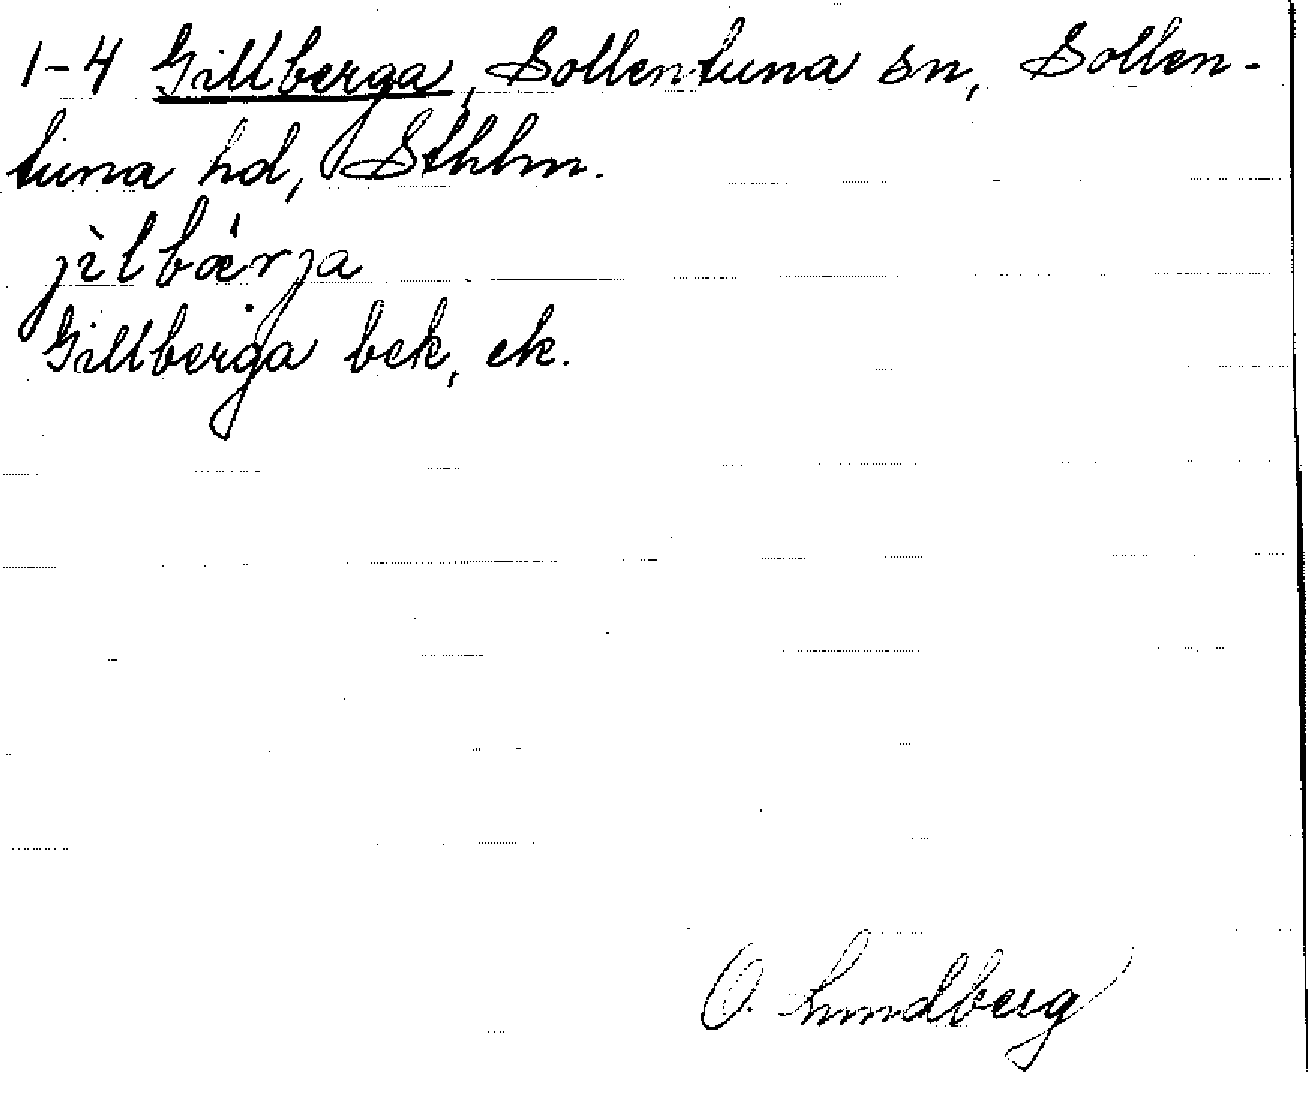 1-4 Gillberga, Sollentuna sn, Sollen-
tuna hd, Sthlm.
jìlbǽrja
Gillberga bek, ek.
O. Lundberg